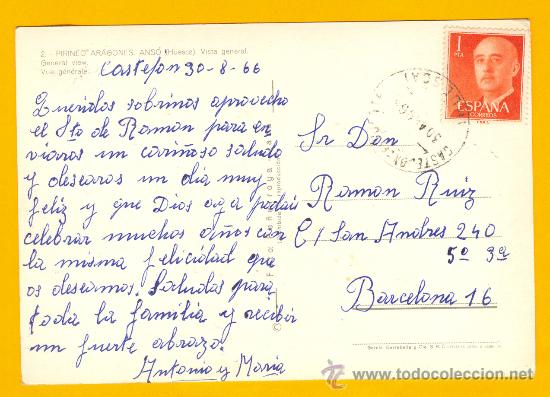 2. - PIRINEO ARAGONES. ANSÓ (Huesca) Vista general.
General view.
Vue générale.
Castejon 30-8-66
Queridos sobrinos aprovecho
el Sto de Ramon para en
viaros un cariñoso saludo
y desearos un dia muy
feliz y que Dios aga podais
celebrar muchos años con
la misma felicidad que
os deseamos. Saludas para
toda la familia y recibir
un fuerte abrazo.
Antonio y Maria
1
PTA
ESPAÑA
CORREOS
Sr Don
Ramon Ruiz
C/ San Andres 240
5º 3ª
Barcelona 16
todocoleccion.net